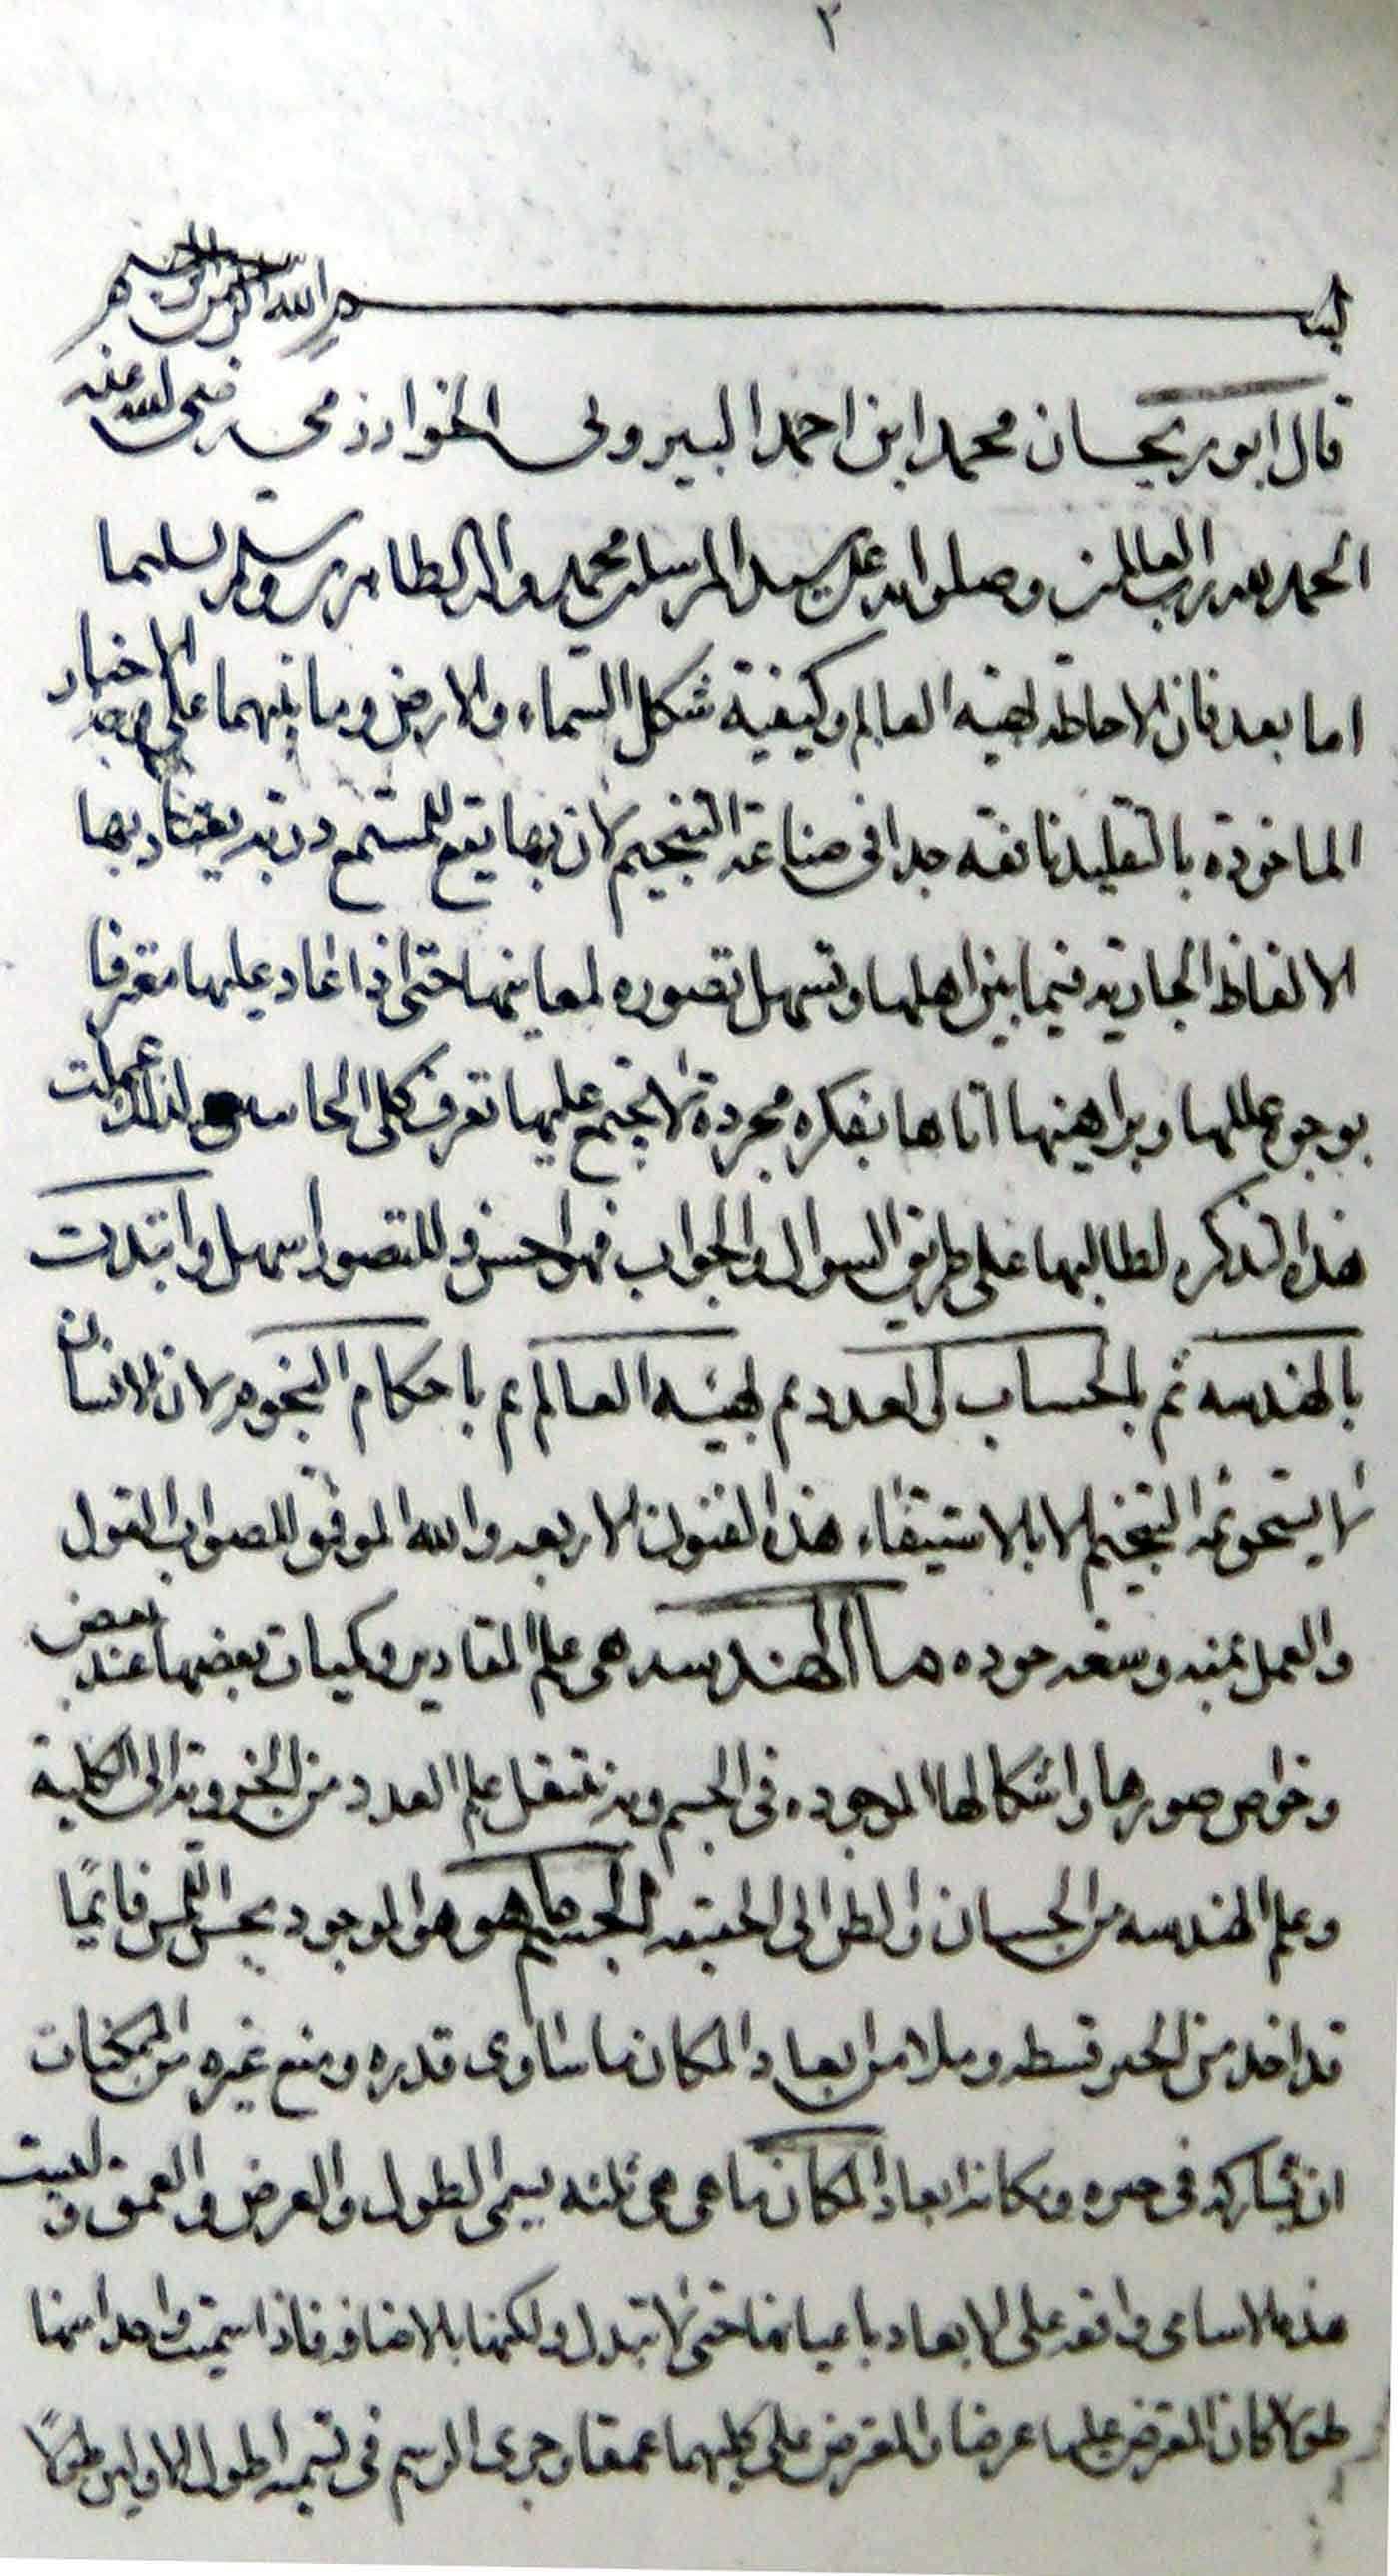 ٢
بسم الله الرحمن الرحيم
قال ابوريحان محمد ابن احمد البيرونى الخوارزمى رضى الله عنه
الحمد لله رب العالمين وصلى الله على سيد المرسلين محمد واله الطاهرين وسلم تسليما
اما بعد فان الاحاطه بهيئة العالم وكيفية شكل السماء والارض وما بينهما على وجه الاخبار
الماخوذة بالتقليد نافعه جدا فى صناعة التنجيم لان بها يقع للمستمع دربة يعتاد بها
الالفاظ الجارية فيما بين اهلها وتسهل تصوره لمعاينها حتى اذا عاد عليها معترفا
بوجوع عللها وبراهينها اتاها بفكره مجردة لا تجتمع عليها تعرف كلى الحاسه عملت
هذه التذكره لطالبها على طريق السوال والجواب فهو احسن وللتصور اسهل وابتدات
بالهندسه ثم بالحساب لى العدد ثم بهيئه العالم ثم باحكام النجوم لان الانسان
لا يستحق سمة التنجيم الا بالاستيفاء هذه الفنون الاربعه والله الموفق للصواب القول
والعمل بمنه وسعه جوده ما الهندسه هى علم المقادير وكميات بعضها عند بعض
وخواص صورها واشكالها الموجوده فى الجسم وبه ينتقل علم العدد من الجزوية الى الكلية
وعلم الهندسه من الحسبان والظن الى الحقيقه الجسم ما هو هو الموجود بحس اللمس قائمًا
قد اخذ من الحيز قسطه وملا من ابعاد المكان ما ساوى قدره ومنع غيره من الممكنات
ان يشاركه فى حيزه ومكانه ابعاد المكان ما هى هى ثلثه يسمى الطول والعرض والعمق وليست
هذه الاسامى واقعه على الابعاد باعيانها حتى لا تبدل ولكنها بالاضافه فاذا سميت واحدا منها
طولا كان المعترض عليها عرضا والمعترض على كليهما عمقا وجرى الرسم فى تسميه اطول الاولين طولًا